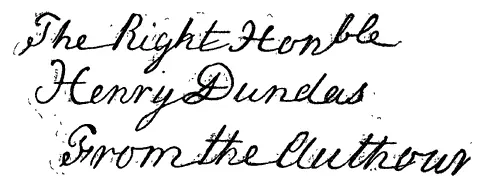 The Right Honble
Henry Dundas
From the Authour